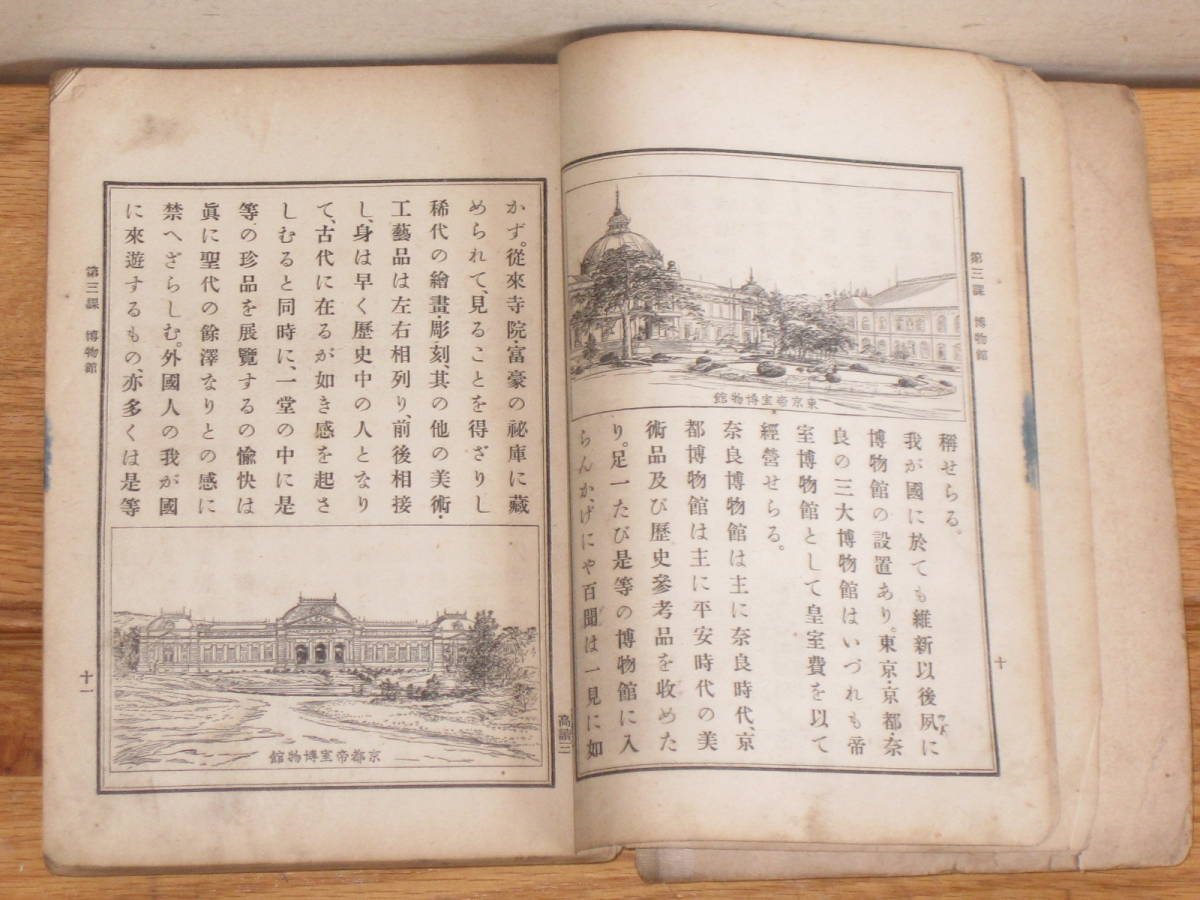 第三課　博物館
十
東京帝室博物館
稱せらる。
我が國に於ても維新以後夙に
博物館の設置あり。東京・京都・奈
良の三大博物館はいづれも帝
室博物館として皇室費を以て
經營せらる。
奈良博物館は主に奈良時代、京
都博物館は主に平安時代の美
術品及び歷史參考品を收めた
り。足一たび是等の博物館に入
らんか、げにや百聞は一見に如
高讀三
かず。從來寺院・富豪の祕庫に藏
められて、見ることを得ざりし
稀代の繪畫・彫刻、其の他の美術・
工藝品は左右相列り、前後相接
し、身は早く歷史中の人となり
て、古代に在るが如き感を起さ
しむると同時に、一堂の中に是
等の珍品を展覽するの愉快は
眞に聖代の餘澤なりとの感に
禁へざらしむ。外國人の我が國
に來遊するもの、亦多くは是等
京都帝室博物館
第三課　博物館
十一